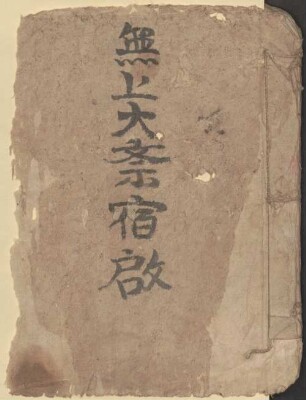 無上大斎宿啟